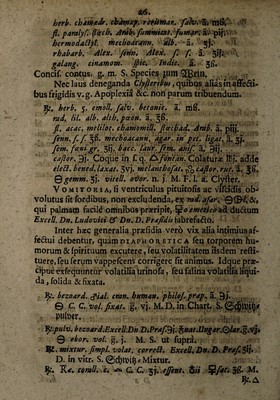 26.
herb. chamædr. chamæp. rorismar. salv. ā. mß.
fl. paralys. stæch. Arab. summitat. fumar. ā. pij.
hermodactyl. mechoacann. alb. ā. ʒj.
rhabarb. Alex. senn. Alex. s. ſ. ā. ʒiij.
galang. cinamom. spic. Indic. ā. ʒß.
Concis. contus. g. m. S. Species zum Wein.
Nec laus deneganda Clysteribus, quibus aliàs in affecti-
bus frigidis v. g. Apoplexiâ &c. non parum tribuendum.
℞. herb. 5. emoll. salv. betonic. ā. mß.
rad. lil. alb. alth. pæon. ā. ʒß.
fl. acac. melilot. chamomill. stœchad. Arab. ā. piij.
senn. s. ſ. ʒß. mechoacann. agar. in pet. ligat. ā. ʒj.
sem. fœni gr. ʒij. bacc. laur. sem. anis. ā. ʒij.
castor. Coque in fontan. Colaturæ adde
elect. bened. laxat. ʒvj. castor. rut. ā. ʒß.
gemm. ʒj. vitell. ovor. n. j. M. F. l. a. Clyster.
VOMITORIA, si ventriculus pituitosis ac viscidis ob-
volutus sit sordibus, non excludenda, ex rad. asar. &,
qui palmam facilè omnibus præripit, emetico ad ductum
Excell. Dn. Ludovici & Dn. D. Præsidis iubrefacto.
Inter hæc generalia præsidia verò vix alia intimius af-
fectui debentur, quàm DIAPHORETICA seu torporem hu-
morum & spirituum excutere, seu volatilitatem iisdem resti-
tuere, seu serum vappescent corrigere sit animus. Idque præ-
cipuè exsequuntur volatilia urinosa, seu salina volatilia liqui-
da, solida & fixata.
℞. bezoard. cran. human. philos. præp. ā. ℈j.
C. C. vol. fixat. g. vj. M. D. in Chart. S. Schwitz
pulver.
℞. pulv. bezoard. Excell. Dn D. Præs. g. vj.
ebor. vol. g. j. M. S. ut suprà.
℞. mixtur. simpl. volat. correct. Excell. Dn. D. Præs. ʒij.
D. in vitr. S. Schwitz-Mixtur.
℞. C. C. ʒj. essent. ʒß. M.
℞.